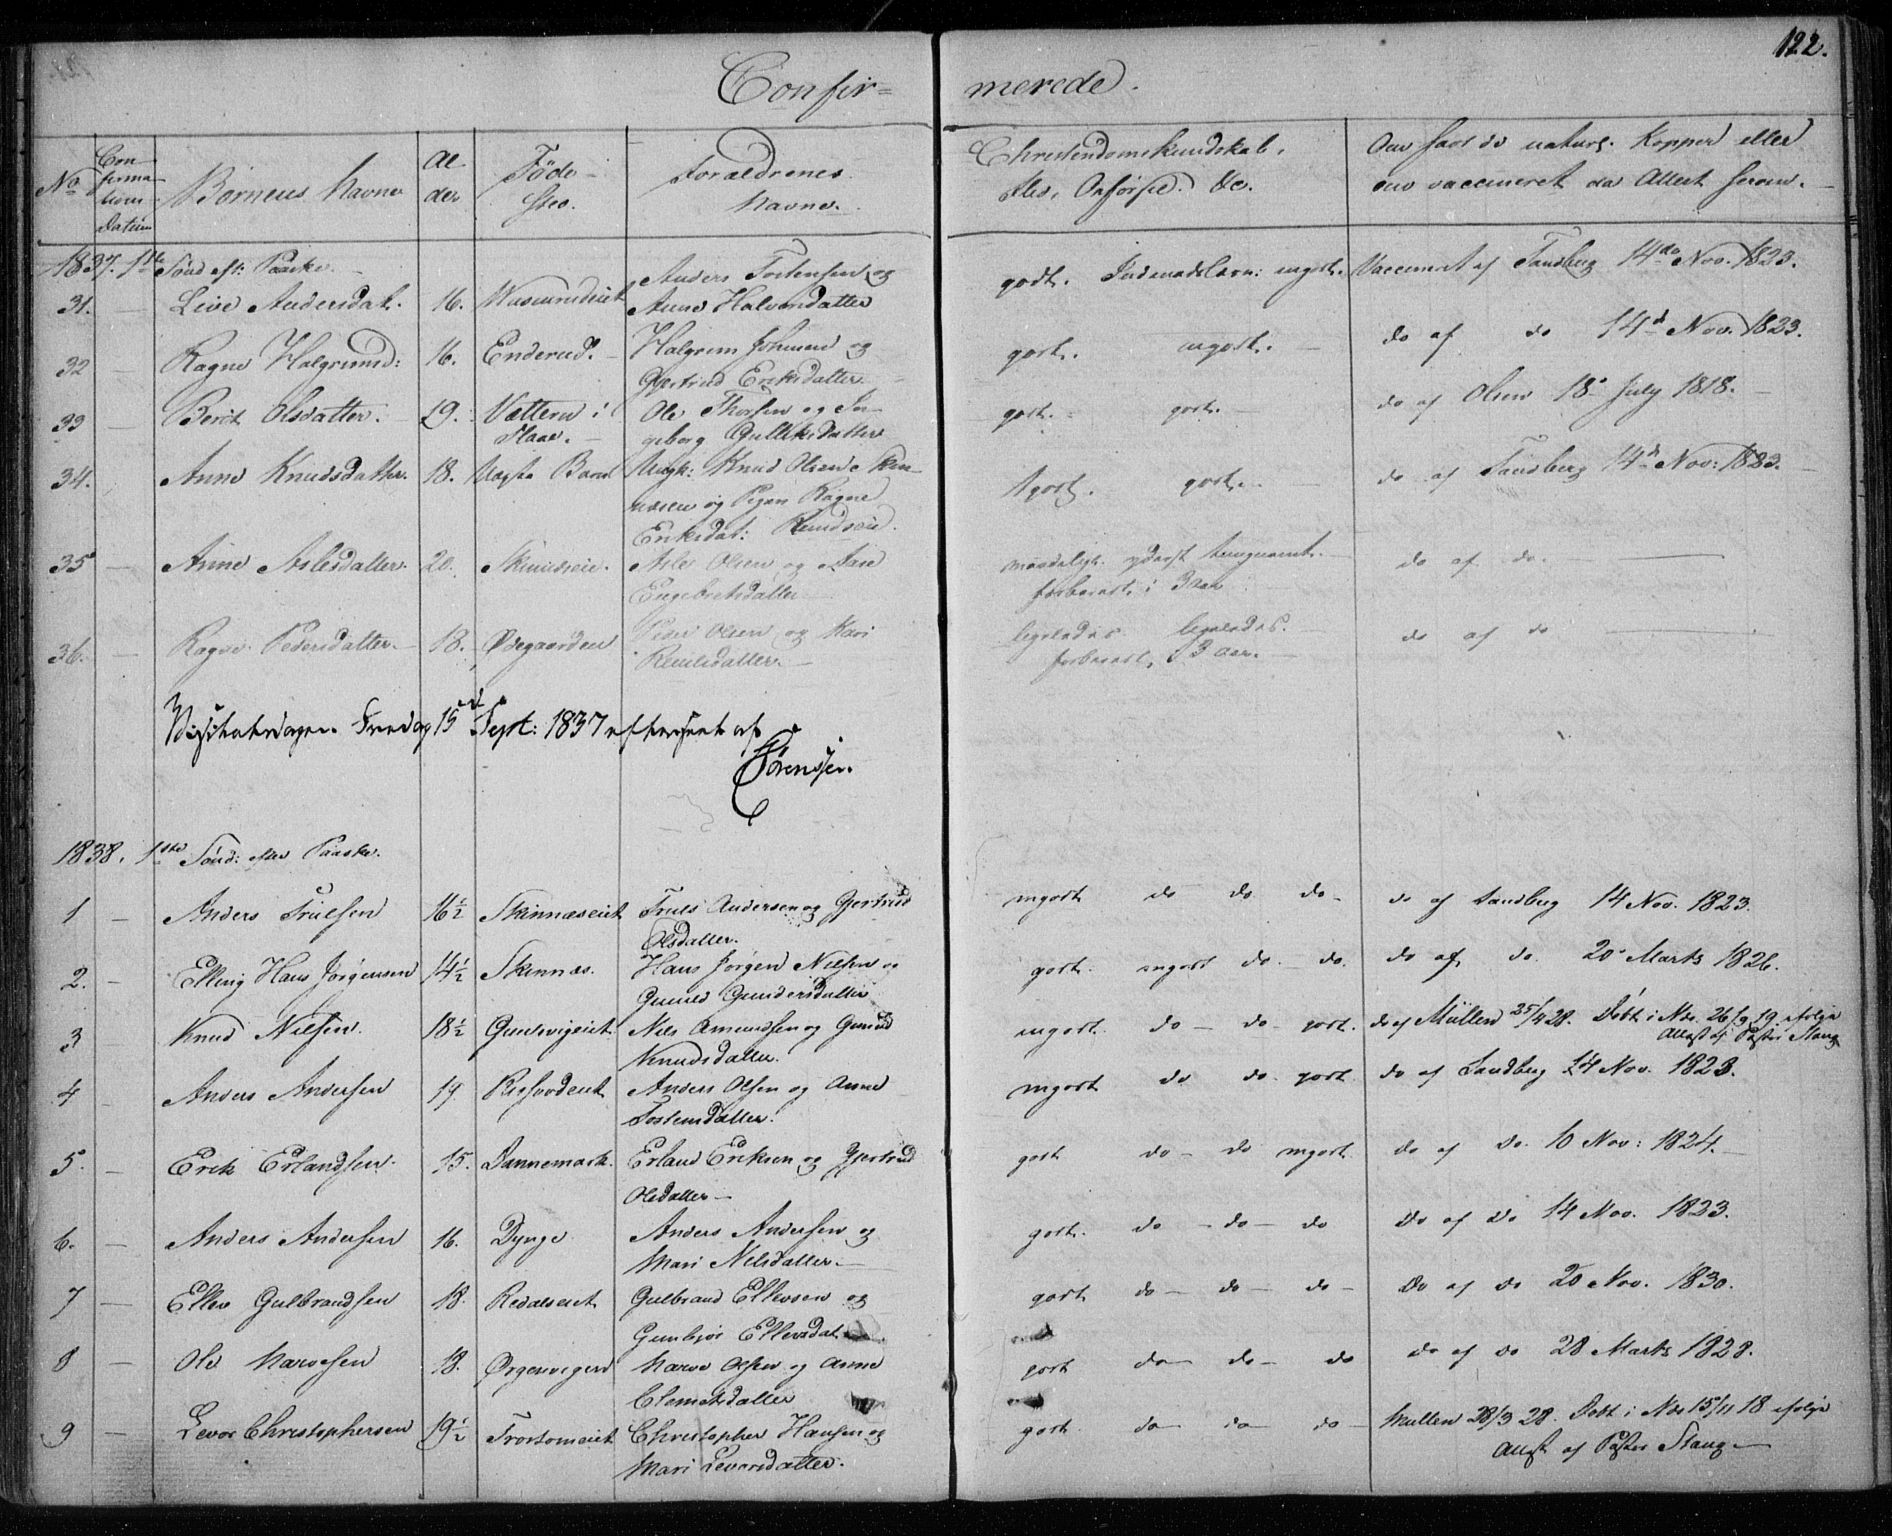 122.
Confir= merede.
No
Con-
firma-
tions-
Datum
Børnenes Navne
Al-
der
Føde-
sted.
Forældrenes
Navne.
Christendomskundskab,
Flid, Opførsel. &c.
Om havt de naturl. Kopper eller
om vaccineret da Attest herom.
1837. 1ste Sönd eft: Paaske.
31. Live Andersdat. 16. Anders Tostensen og
Anne Halvorsdatter godt. mgodt. Vaccineret af Sandberg 14de Nov. 1823.
32 Ragne Halgrimsd: 16. Enderud. Halgrim Johnsen og
Gjertrud Eriksdatter. godt. mgodt. do af do 14d Nov. 1823.
33 Berit Olsdatter. 19. Vætteren i
Flaae. Ole Thorsen og In-
geborg Gulliksdatter godt. godt. do af Olsen 18 July 1818.
34. Anne Knudsdatter. 18. Uægte Barn Ungk: Knud Olsen Skin-
næseie og Pigen Ragne
Eriksdat: Rudseie. godt. godt. do af Sandberg 14d Nov: 1823.
35 Anne Aslesdatter. 20. Skinnæseie. Asle Olsen og Aase
Engebretsdatter maadeligt. yderst tungnemt.
forberedt i 3 aar do af do.
36. Ragne Pedersdatter. 18. Ødegaarden Peder Olsen og Kari
Reiersdatter. ligeledes ligeledes.
forberedt, 3 aar. do af do
Visitatsdagen Fredag 15d Sept: 1837 efterseet af
Sörenssen.
1838. 1ste Sönd: efter Paaske.
1 Anders Trulsen 16½ Skinnæseiet Truls Andersen og Gjertrud
Olsdatter. mgodt do do do do af Sandberg 14 Nov. 1823.
2. Elling Hans Jörgensen 14½ Skinnæs. Hans Jörgen Nielsen og
Gunild Gundersdatter godt. mgodt do do. do af do. 20 Marts 1826.
3 Knud Nielsen. 18½ Gulsvigeiet. Niels Amundsen og Gunild
Knudsdatter. mgodt. do do godt. do af Müller 25/4 28. Döbt i Næs 26/9 19 ifølge
Attest af Pastor Stang
4 Anders Andersen 19. Anders Olsen og Anne
Tostensdatter. mgodt do do godt do af Sandberg 14 Nov. 1823.
5. Erik Erlandsen. 15. Dannemark. Erland Eriksen og Gjertrud
Olsdatter godt do do mgodt do af do. 10 Nov: 1824.
6. Anders Andersen 16. Dynge Anders Andersen og
Mari Nilsdatter. godt. do do do do af do 14 Nov. 1823.
7 Ellev Gulbrandsen 18. Redalseiet Gulbrand Ellevsen og
Gunbjör Ellevsdat godt do do do do af do 20 Nov. 1830.
8 Ole Narvesen 18. Ørgenvigen Narve Olsen og Anne
Clemetsdatter godt do do do do af do 28 Marts 1828.
9 Levor Christophersen 19½ Trostemeiet Christopher Hansen og
Mari Levorsdatter. godt do do do Müller 28/3 28. Döbt i Næs 15/11 18 ifølge
Attest af Pastor Stang